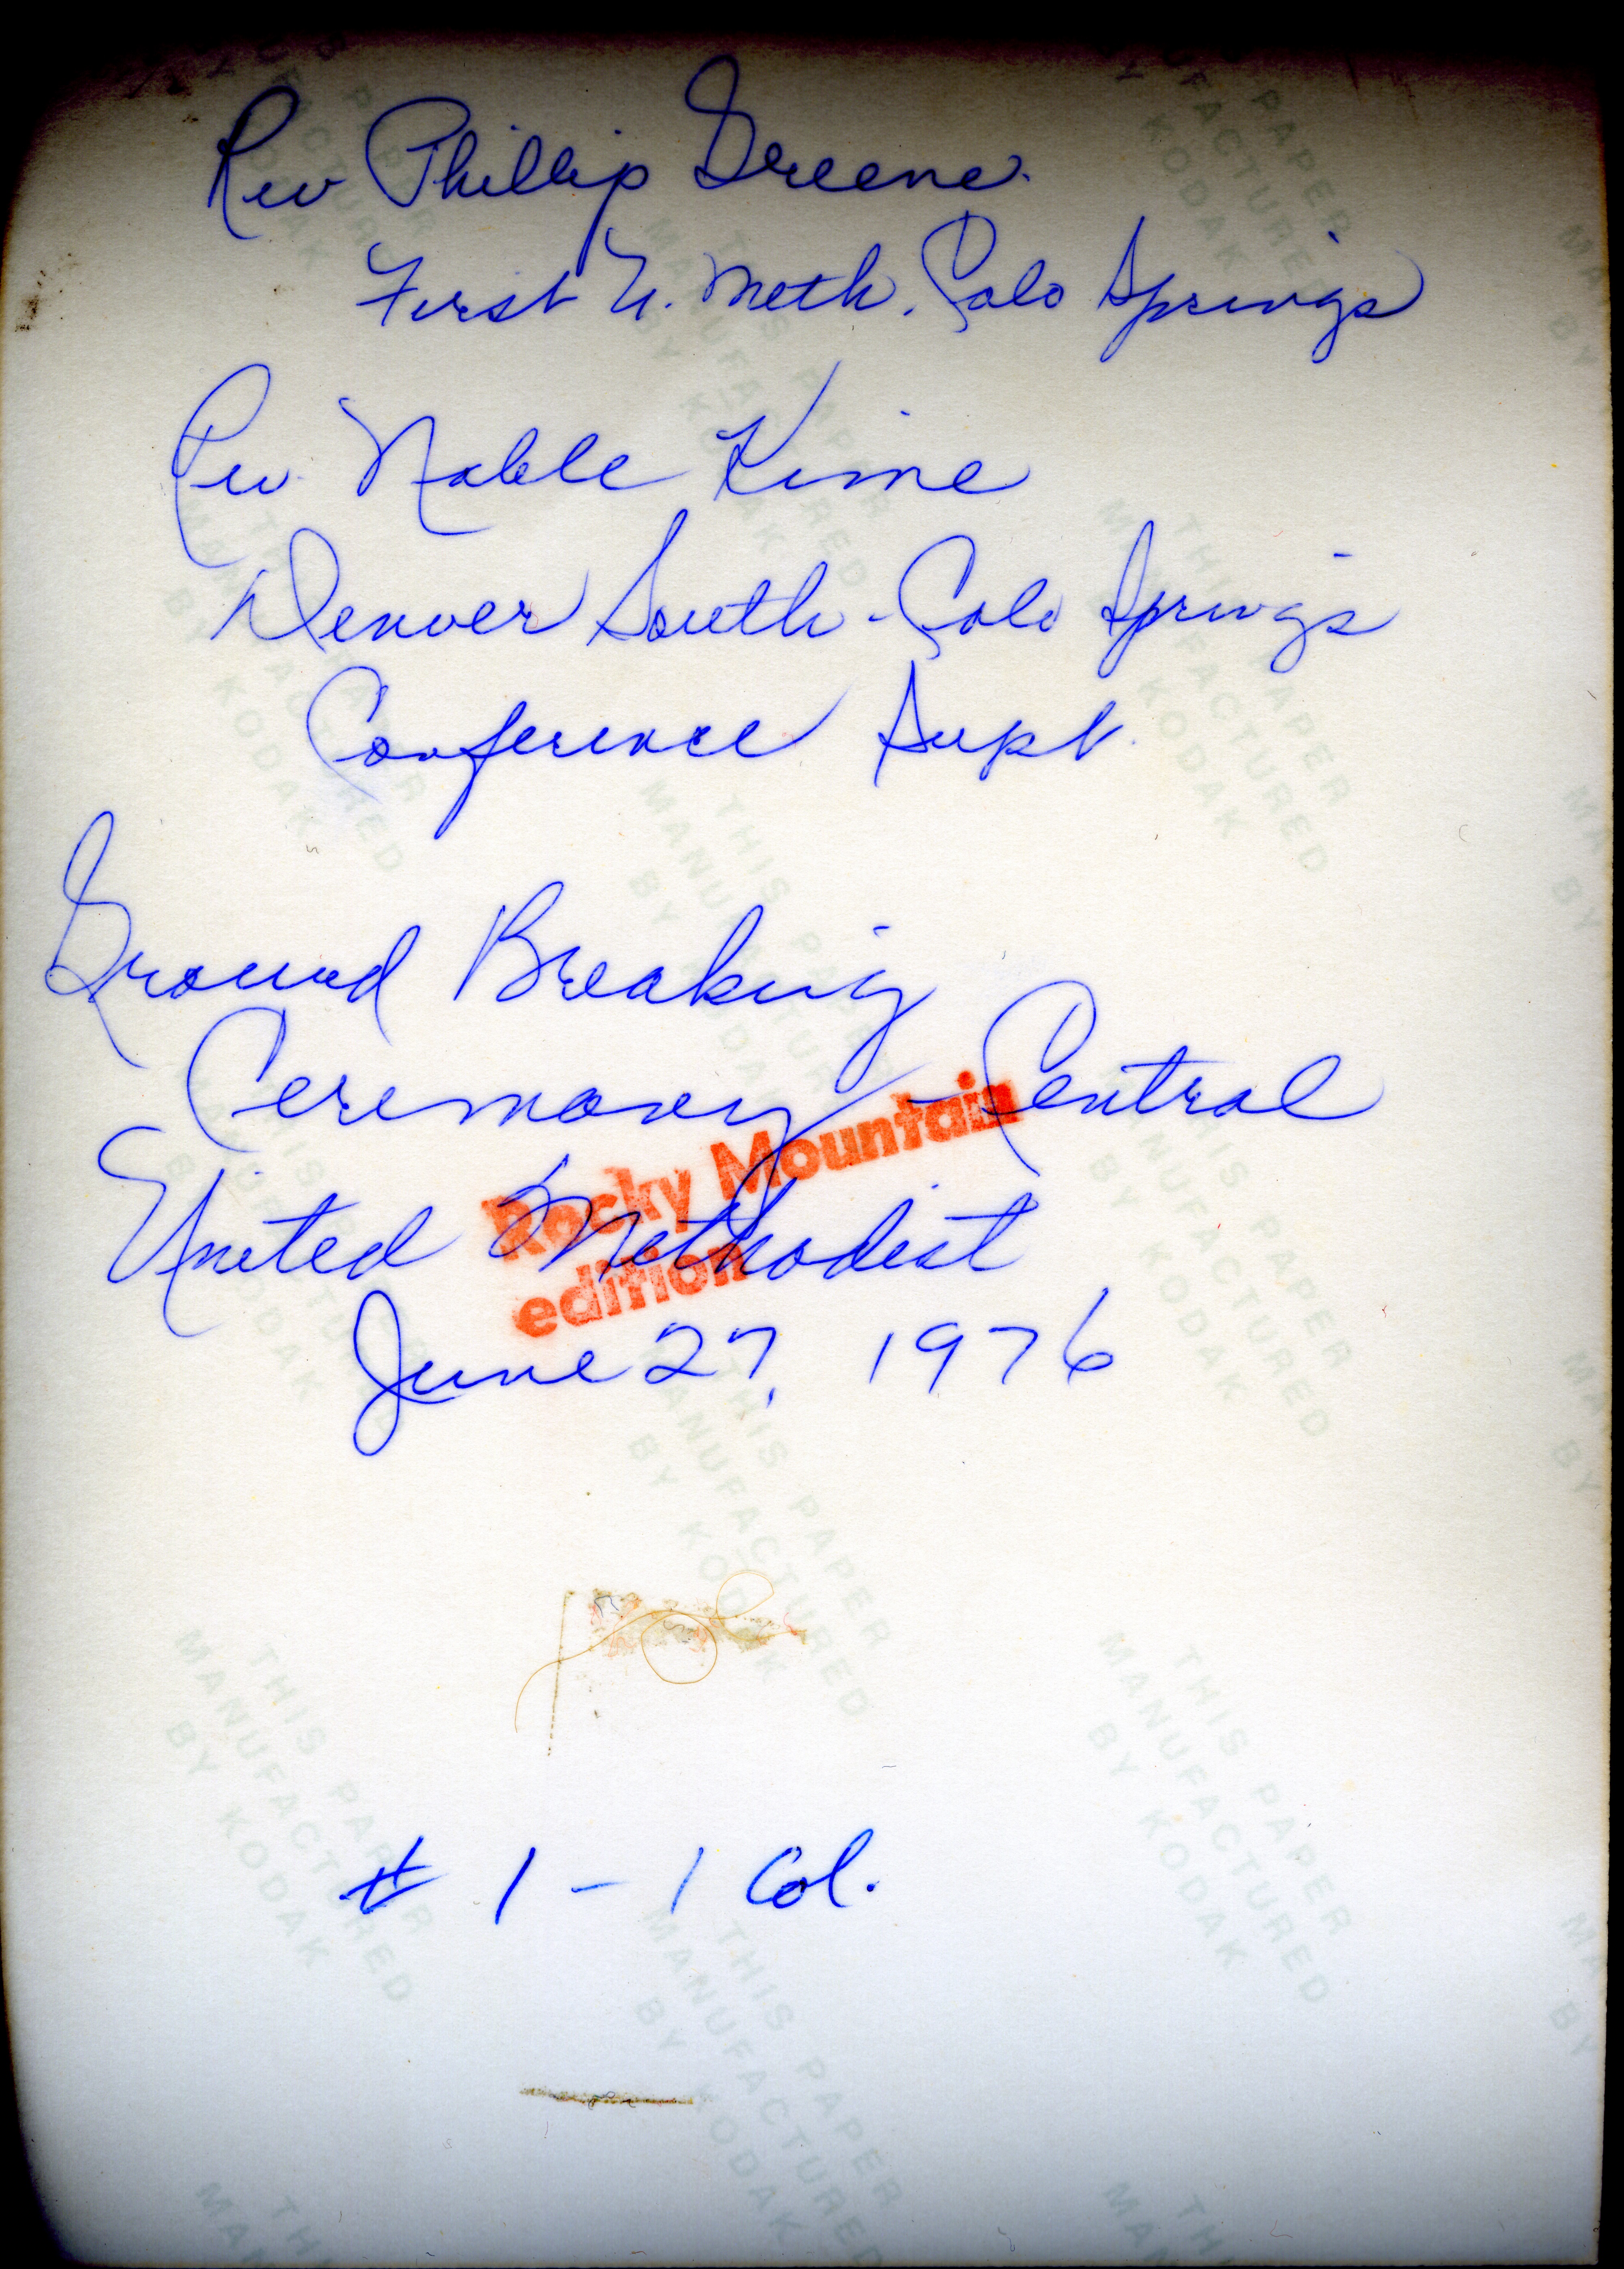 Rev Phillip Greene
First U. Meth. Colo Springs
Rev. Noble Kime
Denver South - Colo Springs
Conference Supt.
Ground Breaking
Ceremony - Central
United Methodist
Rocky Mountain
edition
June 27, 1976
# 1 - 1 Col.
THIS PAPER
MANUFACTURED
BY KODAK